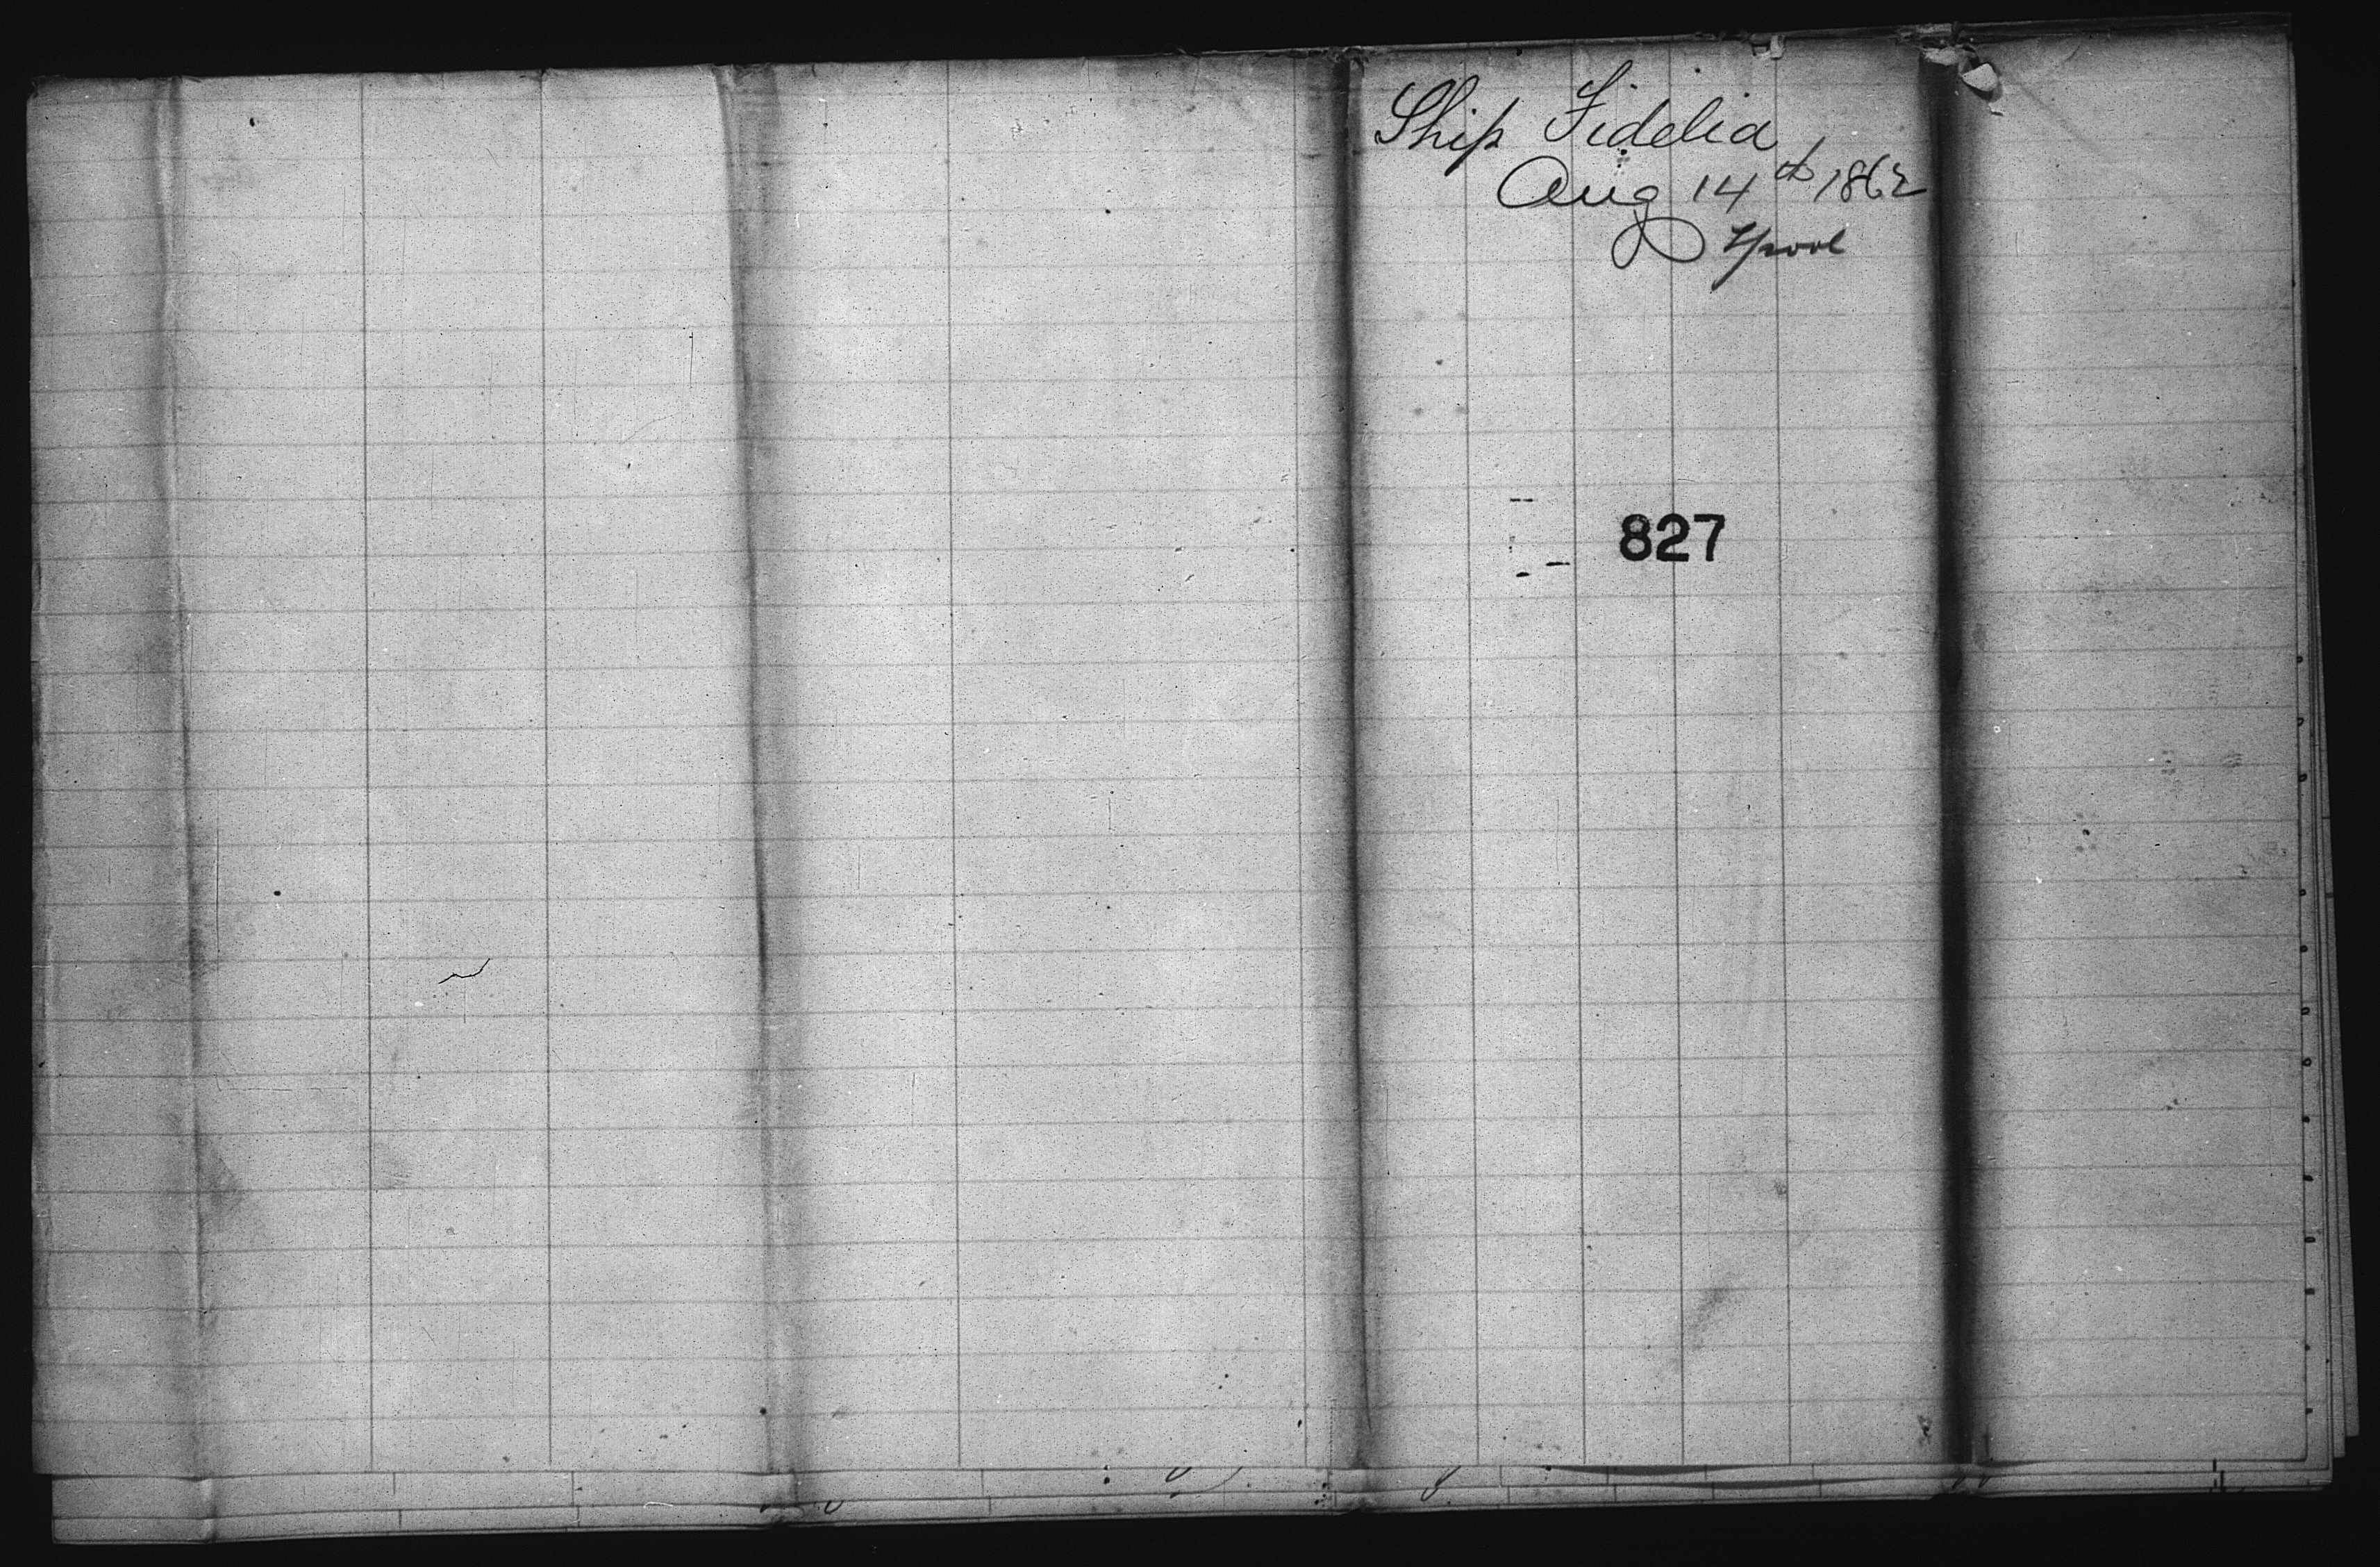 Ship Fidelia
Aug 14th 1862
Lpool
827